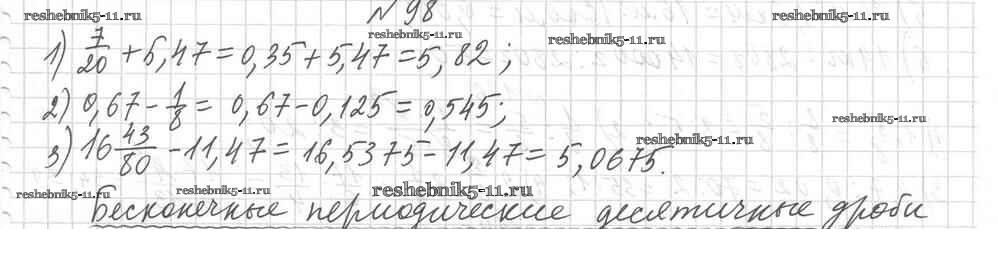 № 98
reshebnik5-11.ru reshebnik5-11.ru
reshebnik5-11.ru reshebnik5-11.ru
1) 7/20 + 5,47 = 0,35 + 5,47 = 5,82;
2) 0,67 - 1/8 = 0,67 - 0,125 = 0,545;
reshebnik5-11.ru
3) 16 43/80 - 11,47 = 16,5375 - 11,47 = 5,0675.
reshebnik5-11.ru
reshebnik5-11.ru reshebnik5-11.ru reshebnik5-11.ru
Бесконечные периодические десятичные дроби